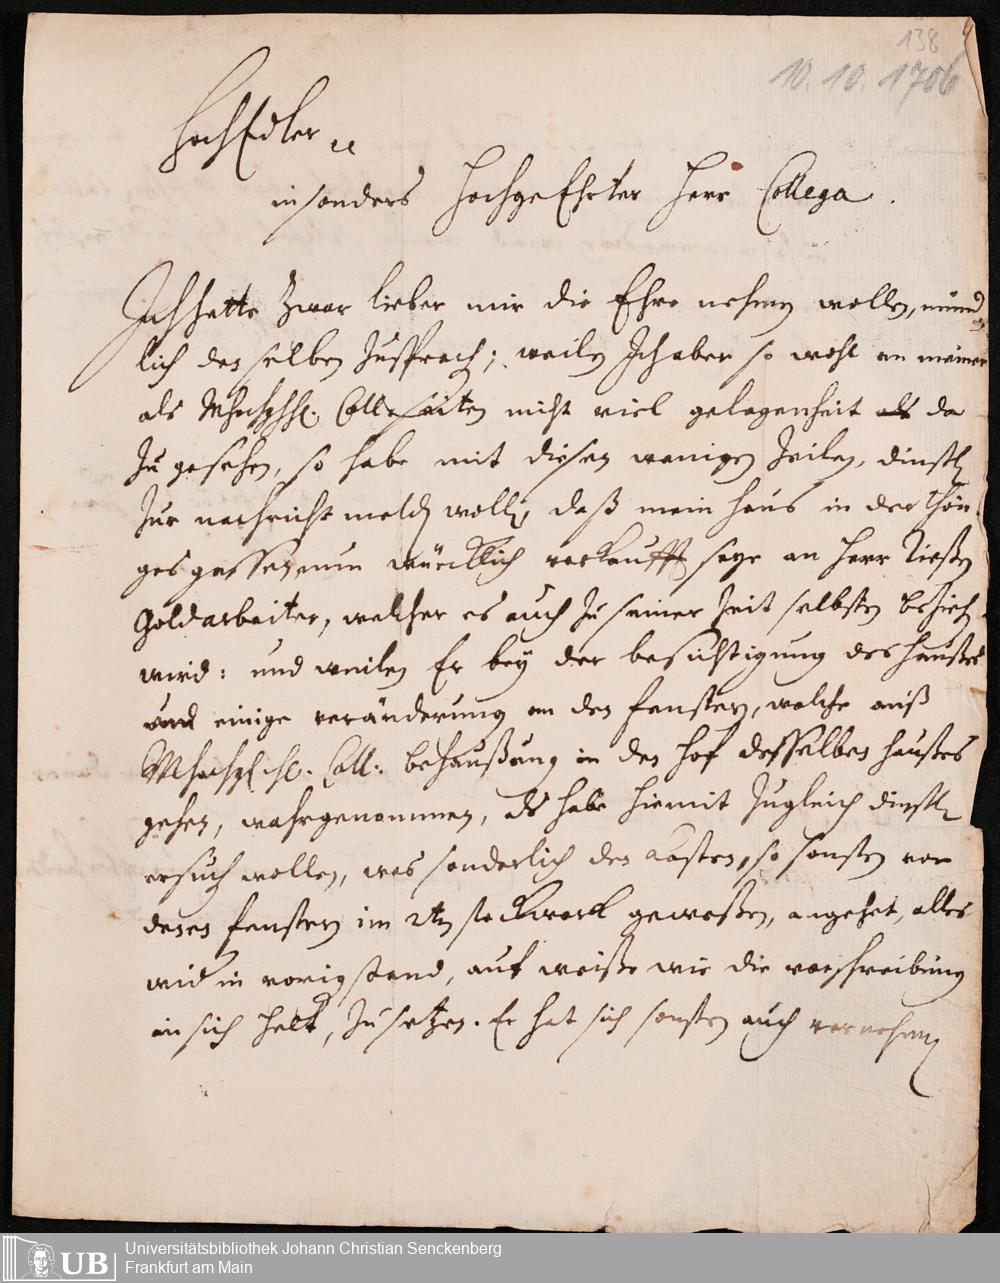 138
10. 10. 1706
HochEdler
insonders HochgeEhrter Herr Collega.
Ich hette zwar lieber mir die Ehre nehmen wollen, münd
lich denselben Zusprach; weilen Ich aber so wohl an meiner
als Mhochgh. Coll. seiten nicht viel gelegenheit da
zu gesehen, so habe mit diesen wenigen Zeilen, dinstl
zur nachricht meld wollen, daß mein Haus in der Thön
ges gassen, nun würcklich verkaufft seye an Herr
Goldarbeiter, welcher es auch zu seiner Zeit selbsten bezieh
wird: und weilen Er bey der besichtigung des Haußes
einige veränderung an den fenstern, welche auß
Mhochgh. Coll: behaußung in den Hof desselben Haußes
gehen, wahrgenommen, als habe hiemit zugleich dinstl
ersuch wollen, was sonderlich den Kasten, so sonsten vor
denen fenstern im 2tn stockwerck geweßen, angehet, alles
wid in vorig stand, auf weiße wie die verschreibung
in sich helt, zu setzen. Er hat sich sonsten auch vernehmen
UB
Universitätsbibliothek Johann Christian Senckenberg
Frankfurt am Main